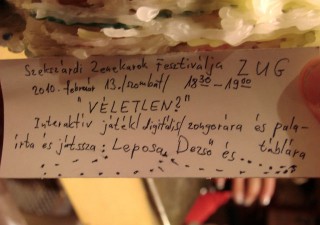 Szekszárdi Zenekarok Fesztiválja ZUG
2010. februar 13. /szombat/ 18³⁰-19⁰⁰
"VÉLETLEN?"
Interaktív játék/digitális/zongorára és pala-
írta és játssza: Leposa Dezső és táblára